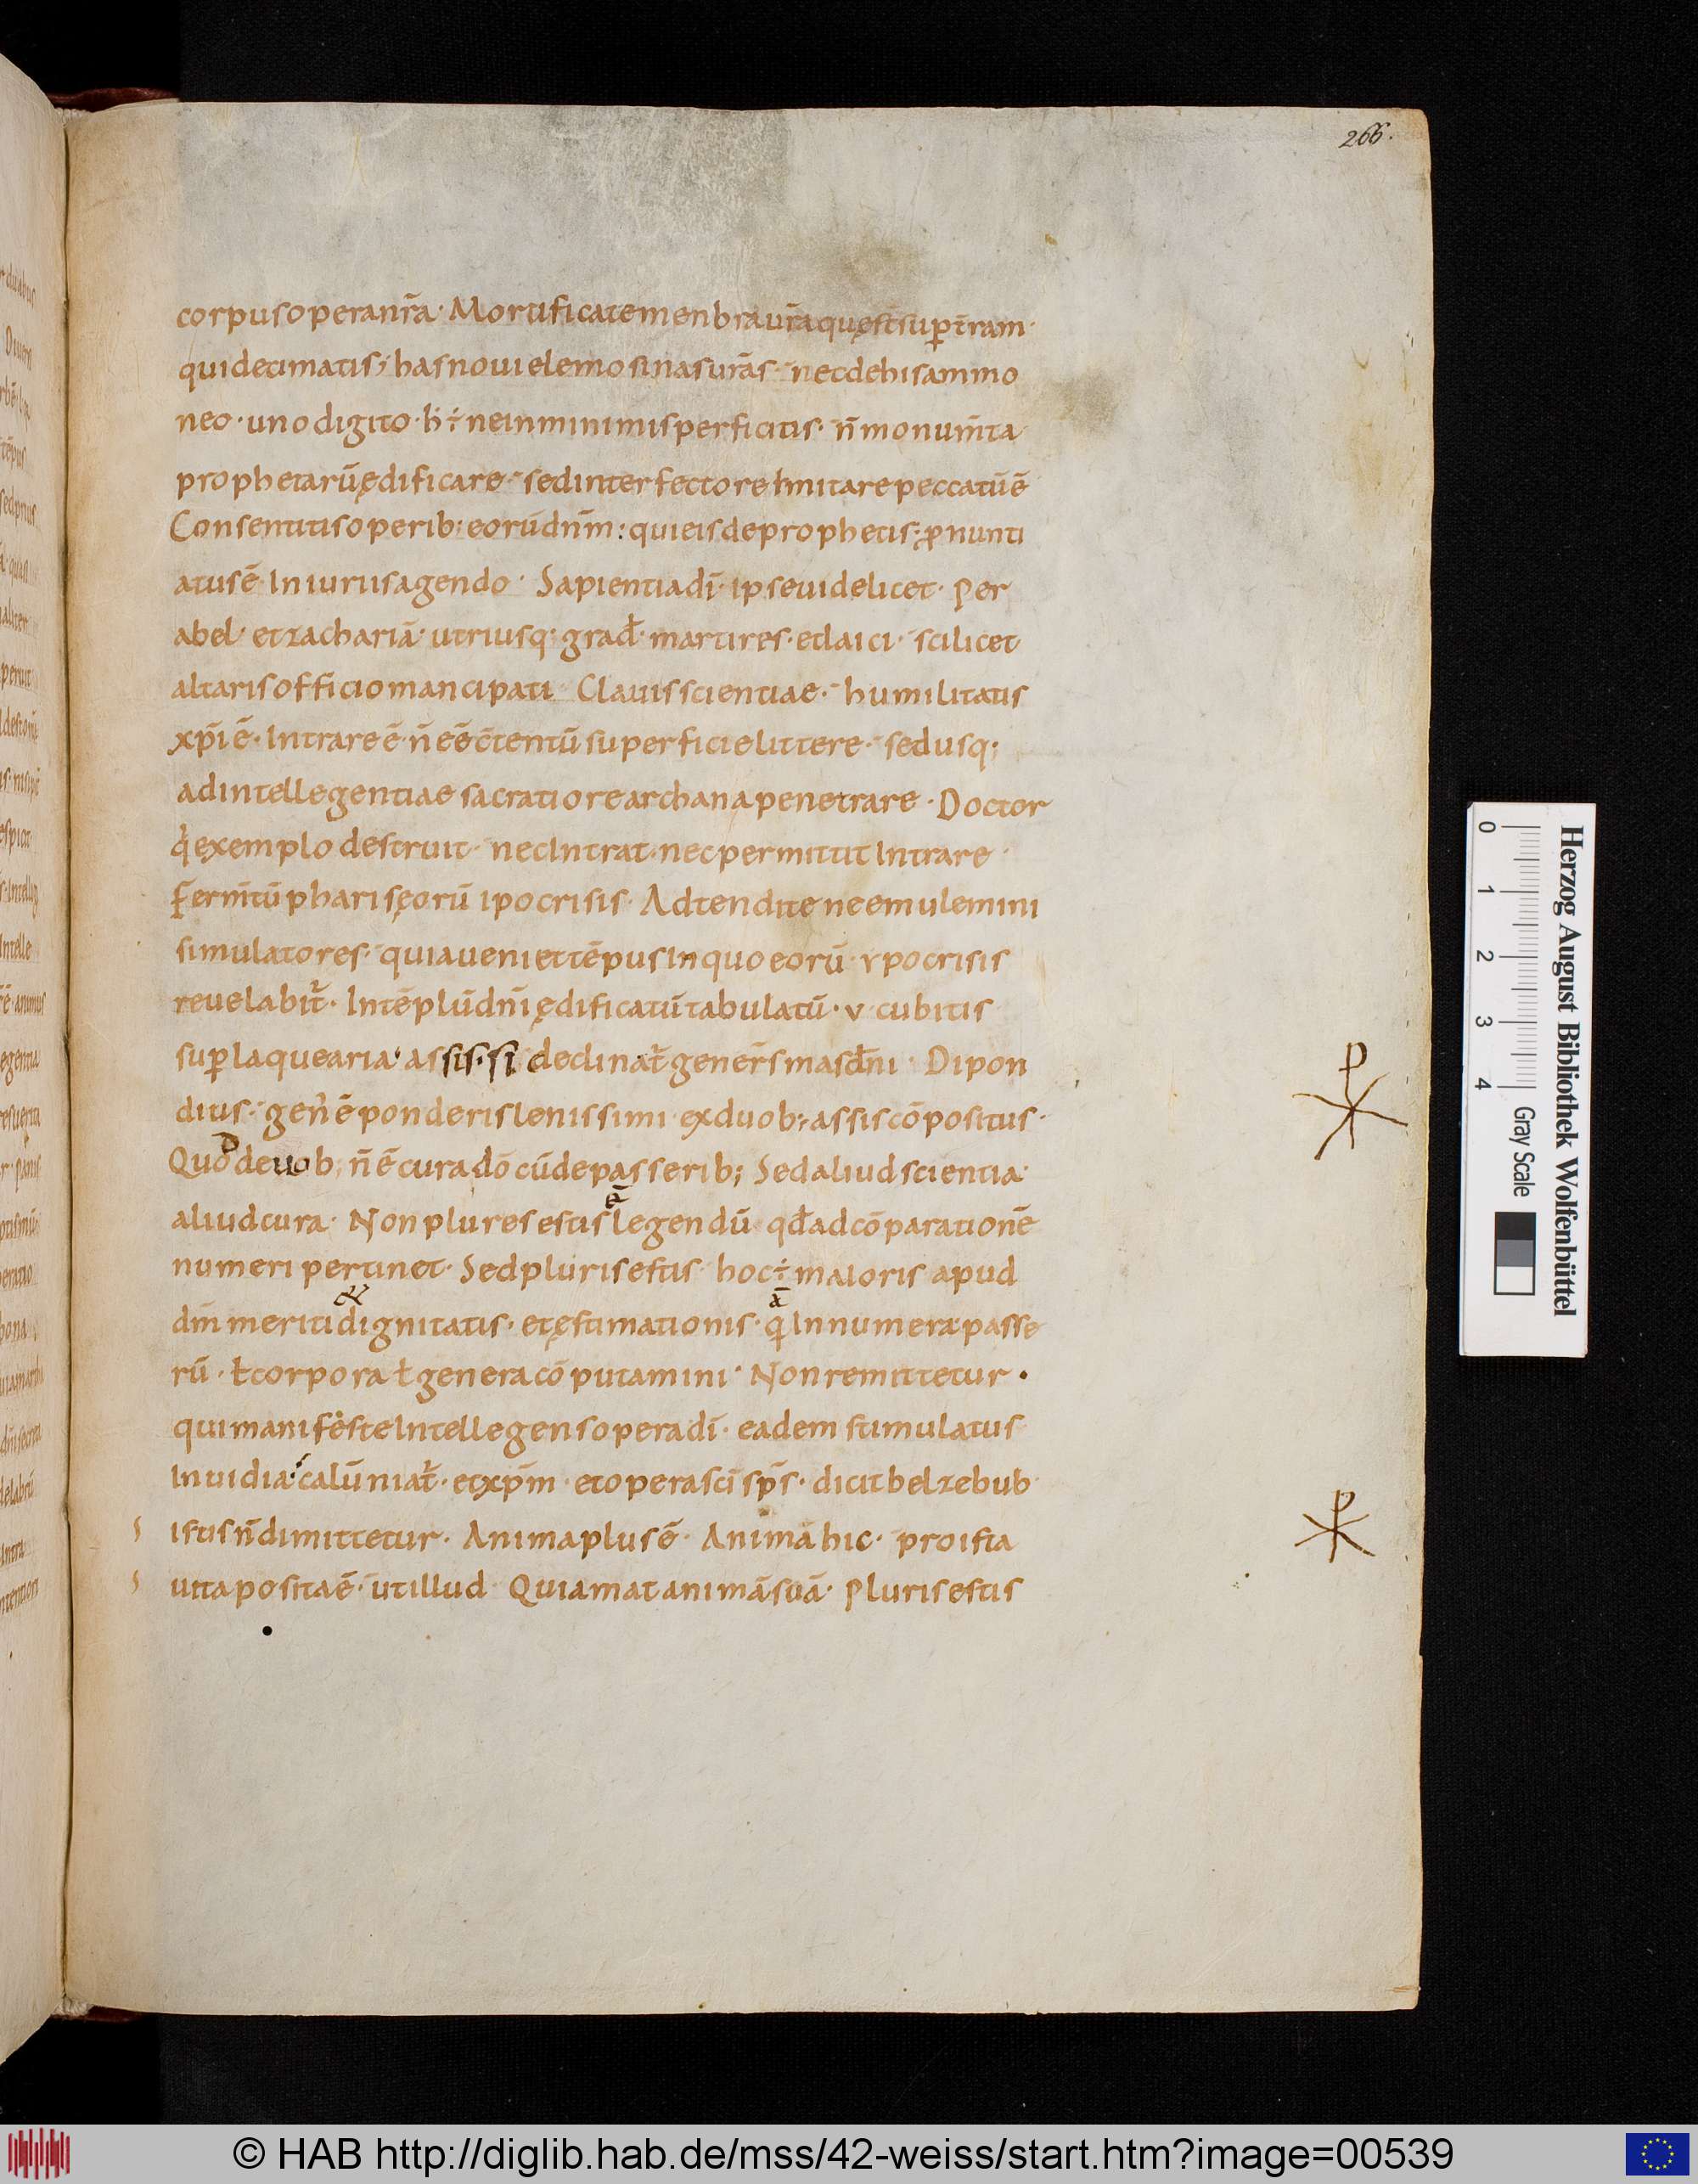 266.
corpus operanr̄a· Mortificate menbra ur̄a quę sīt sup t̄ram·
qui decimatis; has noui elemosinas ur̄as· nec de his ammo
neo· uno digito· h̄ ÷ ne in minimis perficitis· n̄ monum̄ta
prophetarū ędificare· sed interfectore Imitare peccatū ē
Consentitis operib: eorū dn̄m: qui eis de prophetis; ꝓnunti
atus ē Iniuriis agendo· Sapientia dī· ipse uidelicet· Per
abel· et zachariā· utriusq· grad̄· martires· et laici· scilicet
altaris officio mancipati· Clauis scientiae· humilitatis
xp̄i ē· Intrare ē n̄ eē c̄tentū superficie littere· sed usq;
ad intellegentiae sacratiore archana penetrare· Doctor
q̇ exemplo destruit· nec Intrat· nec permittit Intrare·
Ferm̄tū phariseorū ipocrisis· Adtendite ne emulemini
simulatores· quia ueniet tēpus In quo eorū ypocrisis
reuelabit̄· In tēplū dn̄i ędificatū tabulatū· v· cubitis
sup laquearia· assis· si declinat̄ gener̄s masd̄ni· Dipon
dius· gen̄ ē ponderis lenissimi ex duob; assis cōpositus·
D
Quo de uob; n̄ ē cura dō cū de passerib; Sed aliud scientia·
ē
aliud cura· Non plures estis legendū qd̄ ad cōparationē
numeri pertinet· Sed pluris estis hoc ÷ maioris apud
&
dm̄ meriti dignitatis· et ęstimationis· q̄ Innumera passe
rū· ł corpora ł genera cōputamini· Non remittetur·
qui manifeste Intellegens opera dī· eadem stimulatus
Inuidia· calūniat̄· et xp̄m· et opera sc̄i sp̄s· dicit belzebub·
istis n̄ dimittetur· Anima plus ē· Animā hic· pro ista
uita posita ē· ut illud Qui amat animā suā· Pluris estis
Herzog August Bibliothek Wolfenbüttel
0 1 2 3 4 Gray Scale
© HAB http://diglib.hab.de/mss/42-weiss/start.htm?image=00539